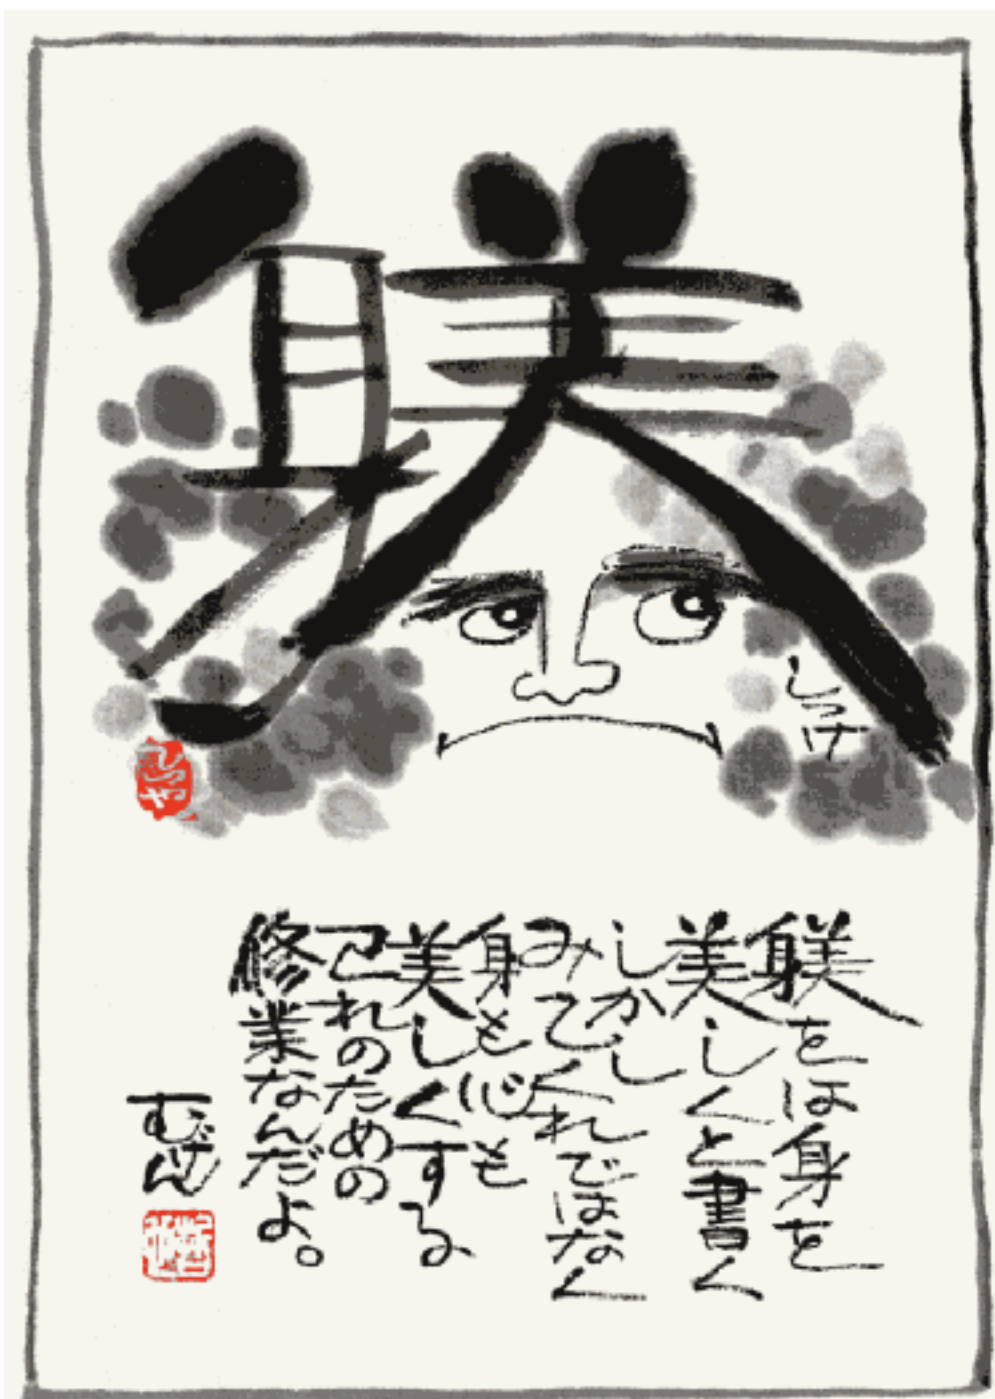 躾
しつけ
躾をは身を
美しくと書く
しかし
みてくれではなく
身も心も
美しくする
己れのための
修業なんだよ。
むげん